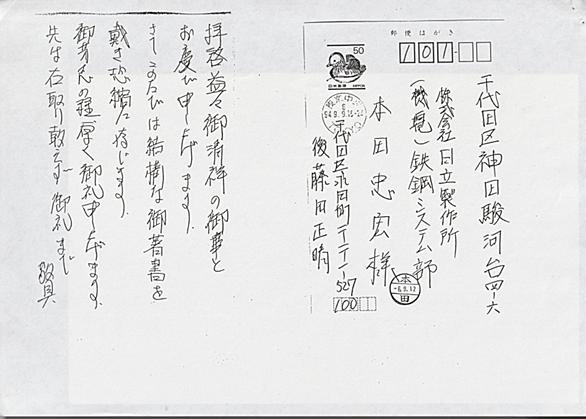 郵便はがき
101
50
日本郵便
NIPPON
千代田区神田駿河台四-六
株式会社日立製作所
(機電)鉄鋼システム部
本田忠宏様
本田
-6.9.12
千代田区永田町
後藤田正晴
100
拝啓益々御清祥の御事と
お慶び申し上げます。
さてこのたびは結構な御著書を
戴き恐縮に存じます。
御芳志の程厚く御礼申し上げます。
先は右取り敢えず御礼まで
敬具